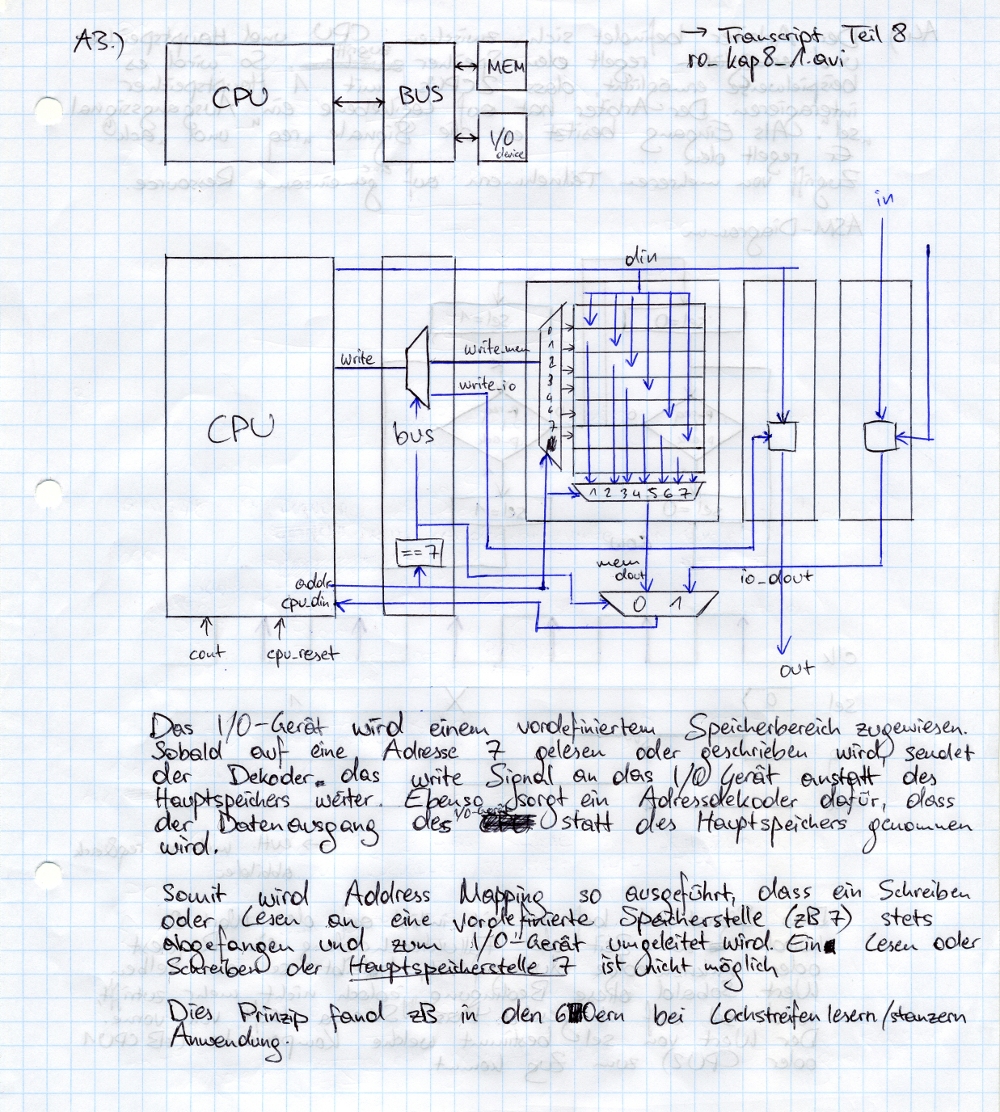 A3.)
→ Transcript Teil 8
ro_kap8_1.avi
CPU
BUS
MEM
I/O
device
in
din
write
write_mem
write_io
0
1
2
3
4
6
7
CPU
bus
1 2 3 4 5 6 7
==7
mem
dout
io_dout
addr
cpu_din
0 1
cout
cpu_reset
out
Das I/O-Gerät wird einem vordefiniertem Speicherbereich zugewiesen.
Sobald auf eine Adresse 7 gelesen oder geschrieben wird, sendet
der Dekoder das write Signal an das I/O Gerät anstatt des
Hauptspeichers weiter. Ebenso sorgt ein Adressdekoder dafür, dass
der Datenausgang des I/O-Gerät statt des Hauptspeichers genommen
wird.
Somit wird Address Mapping so ausgeführt, dass ein Schreiben
oder Lesen an eine vordefinierte Speicherstelle (zB 7) stets
abgefangen und zum I/O-Gerät umgeleitet wird. Ein Lesen oder
Schreiben der Hauptspeicherstelle 7 ist nicht möglich
Dies Prinzip fand zB in den 60ern bei Lochstreifenlesern/stanzern
Anwendung.